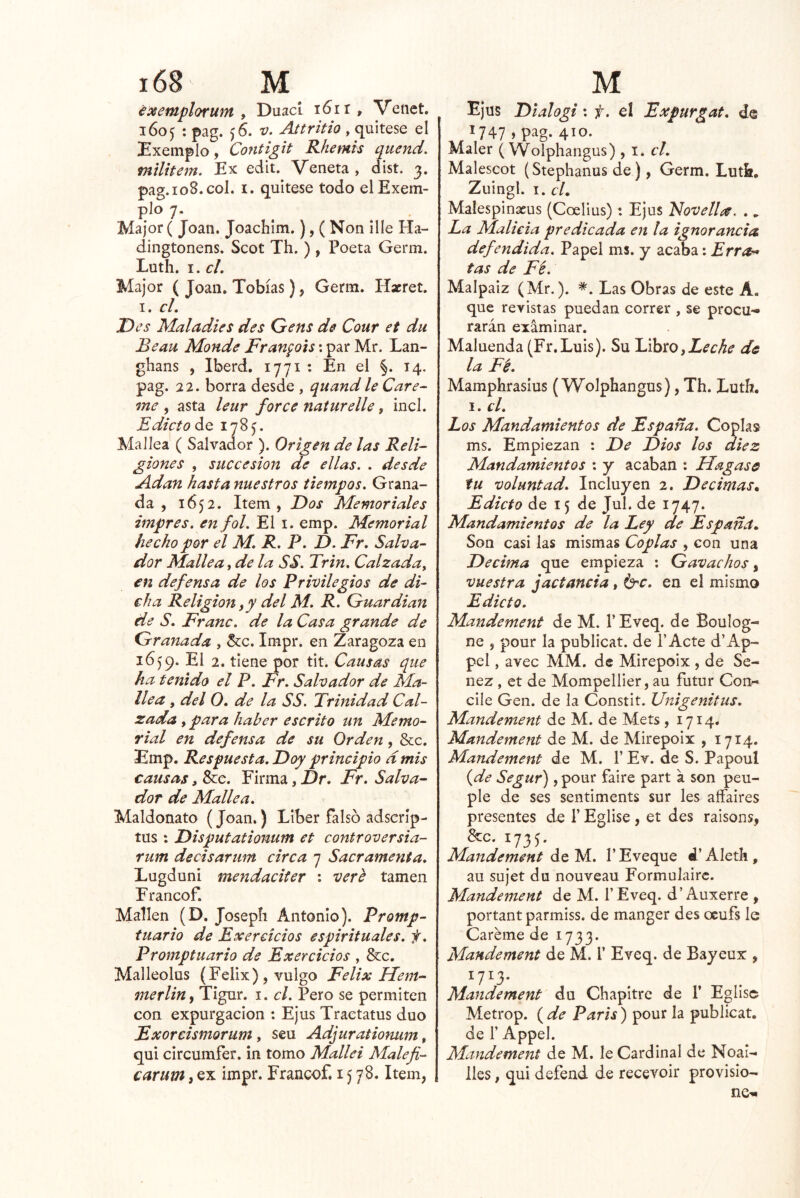 168 M
exemplorum , Duaci 1611 , Venet.
1605 : pag. 56. v. Attritio , quitese el
Exemplo , Contigit Rhemis quend.
militem. Ex edit. Veneta , dist. 3.
pag.108.col. 1. quitese todo el Exem-
plo 7.
Major ( Joan. Joachim. ) , ( Non ille Ha-
dingtonens. Scot Th. ) , Poeta Germ.
Luth. 1. cl.
Major ( Joan. Tobías ) , Germ. Hæret.
1. cl.
Des Maladies des Gens de Cour et du
Beau Monde François : par Mr. Lan-
ghans , Iberd. 1771 : En el §. 14.
pag. 22. borra desde , quand le Care-
me , asta leur force naturelle , incl.
Edicto de 1785.
Mallea ( Salvador ). Origen de las Reli-
giones , succesion de ellas. . desde
Adan hasta nuestros tiempos. Grana-
da , 1652. Item , Dos Memoriales
impres. en fol. El 1. emp. Memorial
hecho por el M. R. P. D. Fr. Salva-
dor Mallea , de la SS. Trin. Calzada,
en defensa de los Privilegios de di-
cha Religion , y del M. R. Guardian
de S. Franc. de la Casa grande de
Granada , &c. Impr. en Zaragoza en
1659. El 2. tiene por tit. Causas que
ha tenido el P. Fr. Salvador de Ma-
llea , del O. de la SS. Trinidad Cal-
zada , para haber escrito un Memo-
rial en defensa de su Orden , &c.
Emp. Respuesta. Doy principio á mis
causas , &c. Firma , Dr. Fr. Salva-
dor de Mallea.
Maldonato ( Joan. ) Liber falsò adscrip-
tus : Disputationum et controversia-
rum decisarum circa 7 Sacramenta.
Lugduni mendaciter : verè tamen
Francof.
Mallen (D. Joseph Antonio). Promp-
tuario de Exercicios espirituales. ⅴ.
Promptuario de Exercicios , &c.
Malleolus (Felix) , vulgo Felix Hem-
merlin , Tigur. 1. cl. Pero se permiten
con expurgacion : Ejus Tractatus duo
Exorcismorum , seu Adjurationum ,
qui circumfer. in tomo Mallei Malefi-
carum , ex impr. Francof. 1578. Item,
M
Ejus Dialogi : ⅴ. el Expurgat. de
1747 , pag. 410.
Maler ( Wolphangus) , 1. cl.
Malescot (Stephanus de) , Germ. Luth.
Zuingl. 1. cl.
Malespinæus (Cœlius) : Ejus Novellæ. . .
La Malicia predicada en la ignorancia
defendida. Papel ms. y acaba : Erra-
tas de Fé.
Malpaiz (Mr.). *. Las Obras de este A.
que revistas puedan correr , se procu-
rarán exâminar.
Maluenda (Fr. Luis). Su Libro , Leche de
la Fé.
Mamphrasius (Wolphangus) , Th. Luth.
1. cl.
Los Mandamientos de España. Coplas
ms. Empiezan : De Dios los diez
Mandamientos : y acaban : Hagase
tu voluntad. Incluyen 2. Decimas.
Edicto de 15 de Jul. de 1747.
Mandamientos de la Ley de España.
Son casi las mismas Coplas , con una
Decima que empieza : Gavachos ,
vuestra jactancia , &c. en el mismo
Edicto.
Mandement de M. l'Eveq. de Boulog-
ne , pour la publicat. de l'Acte d'Ap-
pel , avec MM. de Mirepoix , de Se-
nez , et de Mompellier, au futur Con-
cile Gen. de la Constit. Unigenitus.
Mandement de M. de Mets , 1714.
Mandement de M. de Mirepoix , 1714.
Mandement de M. l' Ev. de S. Papoul
(de Segur) , pour faire part à son peu-
ple de ses sentiments sur les affaires
presentes de l' Eglise , et des raisons,
&c. 1735.
Mandement de M. l'Eveque d' Aleth ,
au sujet du nouveau Formulaire.
Mandement de M. l'Eveq. d'Auxerre ,
portant parmiss. de manger des œufs le
Carème de 1733.
Mandement de M. l' Eveq. de Bayeux ,
1713.
Mandement du Chapitre de l' Eglise
Metrop. (de Paris) pour la publicat.
de l' Appel.
Mandement de M. le Cardinal de Noai-
lles , qui defend de recevoir provisio-
ne-